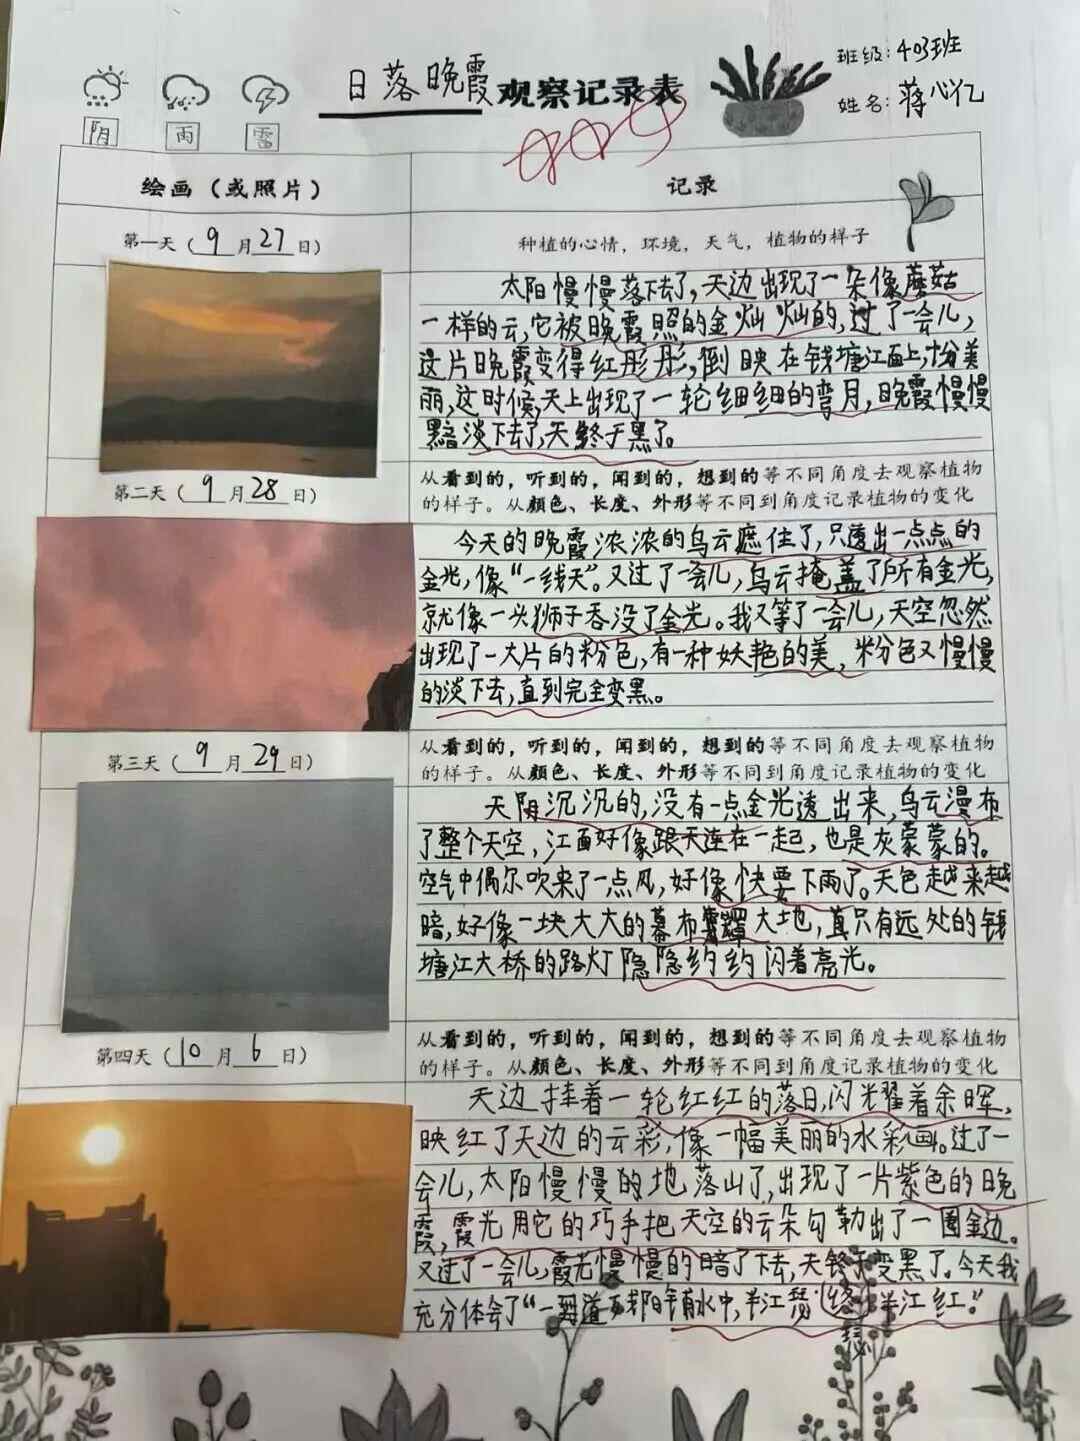 日落晚霞观察记录表
班级:403班
姓名:蒋心忆
阴 雨 雷
绘画（或照片）
记录
第一天（9月27日）
种植的心情，环境，天气，植物的样子
太阳慢慢落下去了，天边出现了一朵像蘑菇
一样的云，它被晚霞照的金灿灿的，过了一会儿，
这片晚霞变得红彤彤，倒映在钱塘江面上，十分美
丽，这时候，天上出现了一轮细细的弯月，晚霞慢慢
黯淡下去了，天终于黑了。
第二天（9月28日）
从看到的，听到的，闻到的，想到的等不同角度去观察植物
的样子。从颜色、长度、外形等不同到角度记录植物的变化
今天的晚霞浓浓的乌云遮住了，只透出一点点的
金光，像“一线天”。又过了一会儿，乌云掩盖了所有金光，
就像一头狮子吞没了金光。我又等了一会儿，天空忽然
出现了一大片的粉色，有一种妖艳的美，粉色又慢慢
的淡下去，直到完全变黑。
第三天（9月29日）
从看到的，听到的，闻到的，想到的等不同角度去观察植物
的样子。从颜色、长度、外形等不同到角度记录植物的变化
天阴沉沉的，没有一点金光透出来，乌云漫布
了整个天空，江面好像跟天连在一起，也是灰蒙蒙的。
空气中偶尔吹来了一点风，好像快要下雨了。天色越来越
暗，好像一块大大的幕布大地，真只有远处的钱
塘江大桥的路灯隐隐约约闪着亮光。
第四天（10月6日）
从看到的，听到的，闻到的，想到的等不同角度去观察植物
的样子。从颜色、长度、外形等不同到角度记录植物的变化
天边挂着一轮红红的落日，闪光耀着余晖，
映红了天边的云彩，像一幅美丽的水彩画。过了一
会儿，太阳慢慢的地落山了，出现了一片紫色的晚
霞，霞光用它的巧手把天空的云朵勾勒出了一圈金边。
又过了一会儿，霞光慢慢的暗了下去，天终于变黑了。今天我
充分体会了“一道残阳铺水中，半江瑟 半江红。”